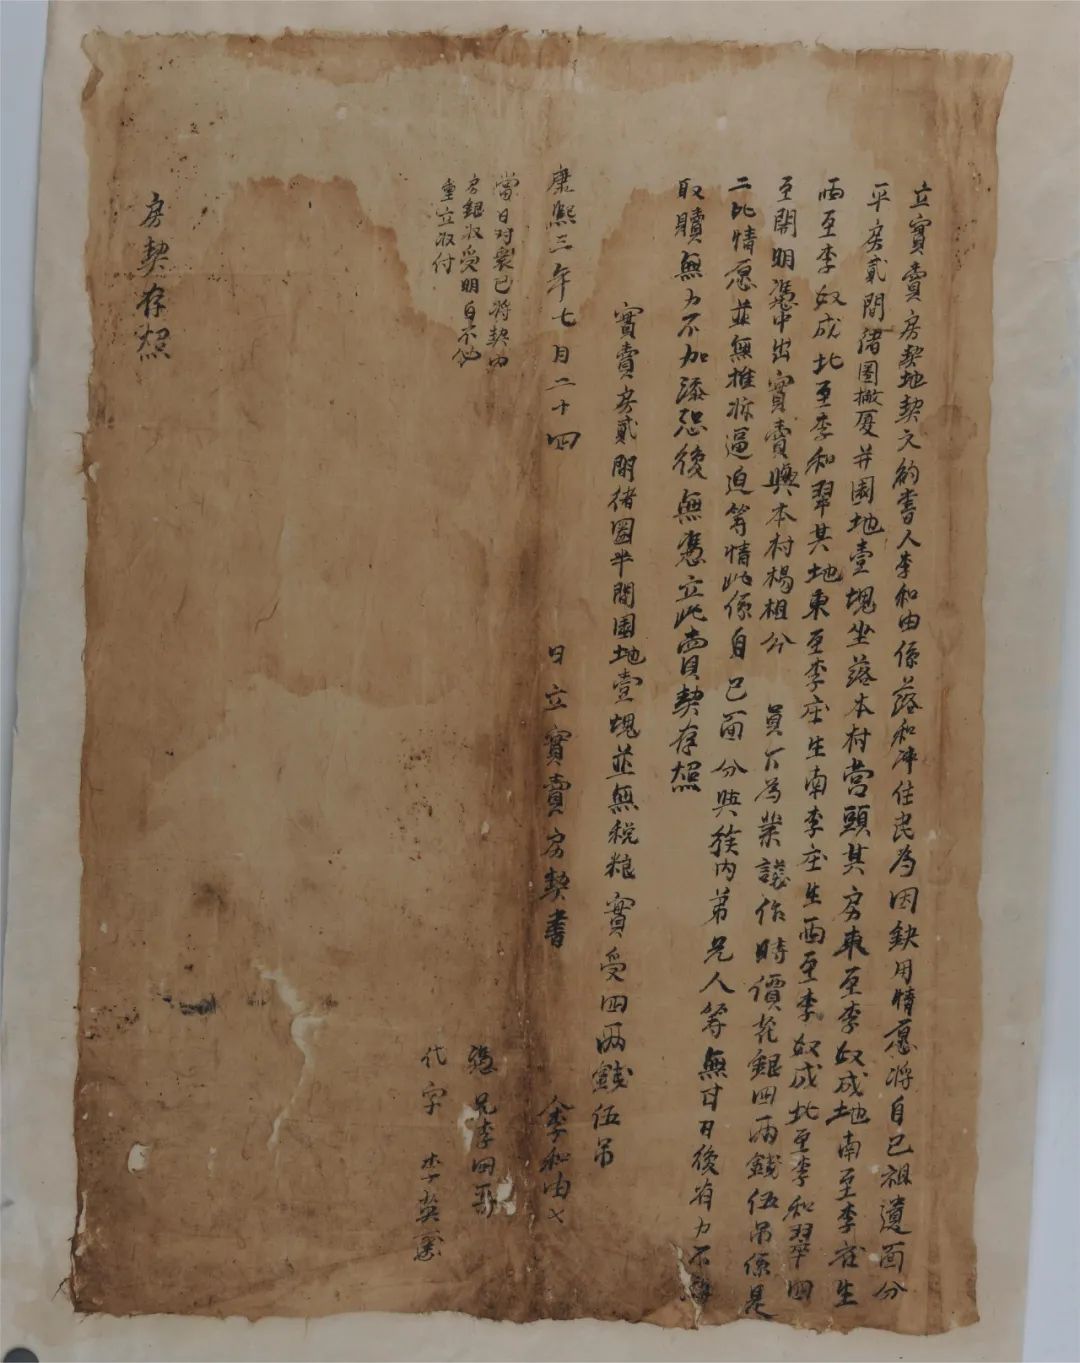 立實賣房契地契文約書人李和由係落和冲住民為因缺用情愿将自已祖遺面分
平房貳間猪圈撒厦并園地壹塊坐落本村營頭其房東至李奴成地南至李庄生
西至李奴成北至李和翠其地東至李庄生南李庄生西至李奴成北至李和翠四
至開明憑中出實賣與本村楊祖分 員下為業議作時價花銀四両錢伍吊係是
二比情愿並無推捺逼迫等情此係自已面分與族内弟兄人等無干日後有力不
取贖無力不加添恐後無憑立此賣契存照
實賣房貳間猪圈半間園地壹塊並無税粮實受四両錢伍吊
康熙三年七月二十四 日立實賣房契書 李和由
當日对衆已将契内
房銀収受明白不必
重立収付
憑 兄李四
代字 李英
房契存照